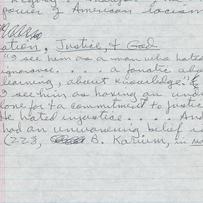 power of American racism
ation, Justice, & God
"I see him as a man who hated
ignorance. . . . a fanatic abo
learning, about knowledge."
I see him as having an und
one for & a commitment to justic
He hated injustice. . . . And
had an unwavering belief i
(223, B. Karium, in